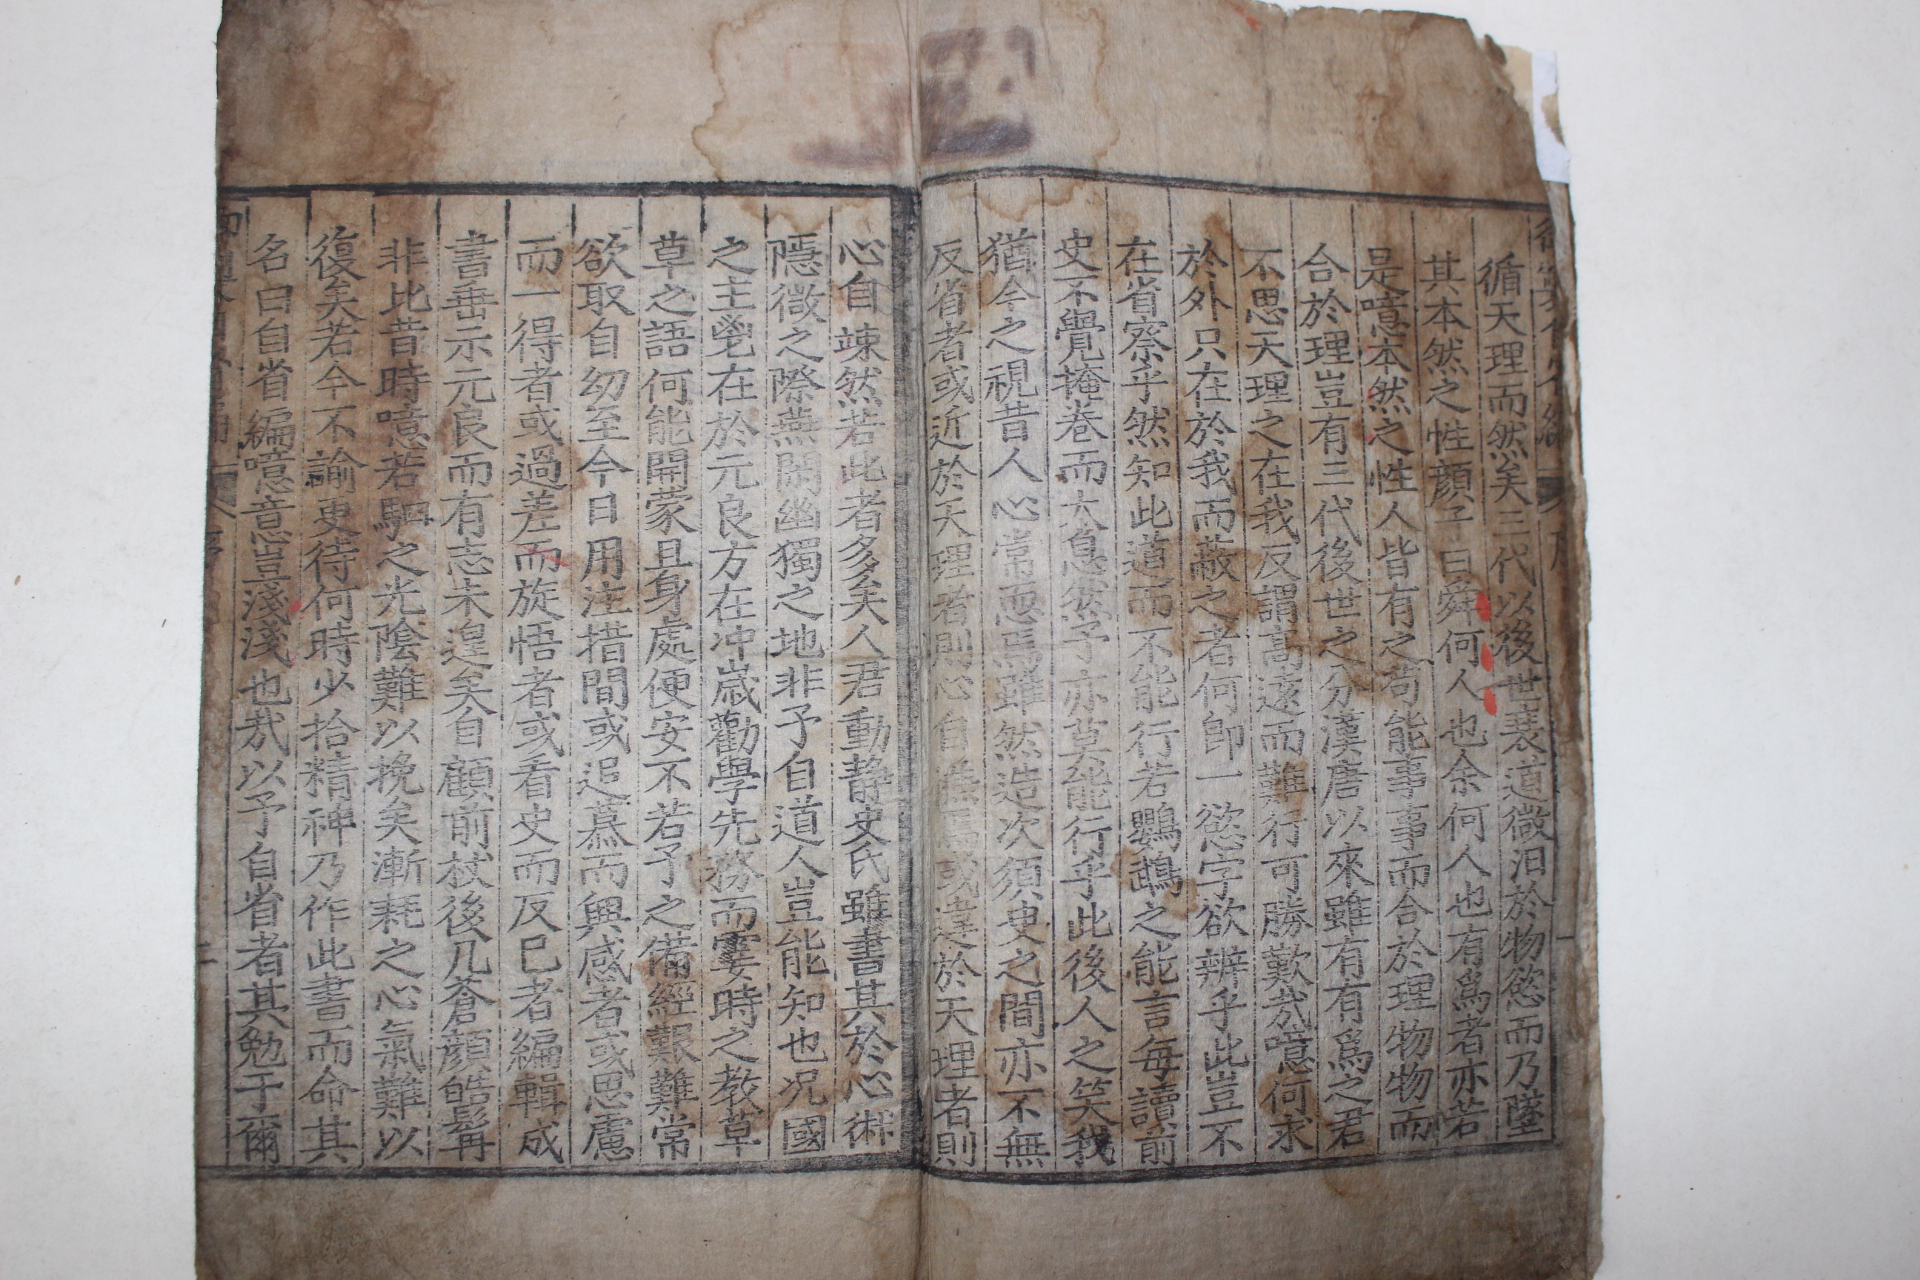 循天理而然矣三代以後世衰道微汨於物慾而乃墜
其本然之性顔子曰舜何人也余何人也有爲者亦若
是噫本然之性人皆有之苟能事事而合於理物物而
合於理豈有三代後世之分漢唐以來雖有有爲之君
不思天理之在我反謂高遠而難行可勝歎哉噫何求
於外只在於我而蔽之者何卽一慾字欲辨乎此豈不
在省察乎然知此道而不能行若鸚鵡之能言每讀前
史不覺掩巻而太息寡予亦莫能行乎此後人之笑我
猶今之視昔人心常恧焉雖然造次須臾之間亦不無
反省者或近於天理者則心自焉或違於天理者則
心自竦然若此者多矣人君動静史氏雖書其於心術
隱微之際燕閑幽獨之地非予自道人豈能知也况國
之主鬯在於元良方在冲歲勸學先務而霎時之教草
草之語何能開蒙且身處便安不若予之備經艱難常
欲取自㓜至今日用注措間或追慕而興感者或思慮
而一得者或過差而旋悟者或看史而反已者編輯成
書垂示元良而有志未遑矣自顧前杖後几蒼顔皓髯
非比昔時噫若駟之光陰難以挽矣漸耗之心氣難以
復矣若今不諭更待何時必拾精神乃作此書而命其
名曰自省編噫意豈淺淺也哉以予自省者其勉于爾